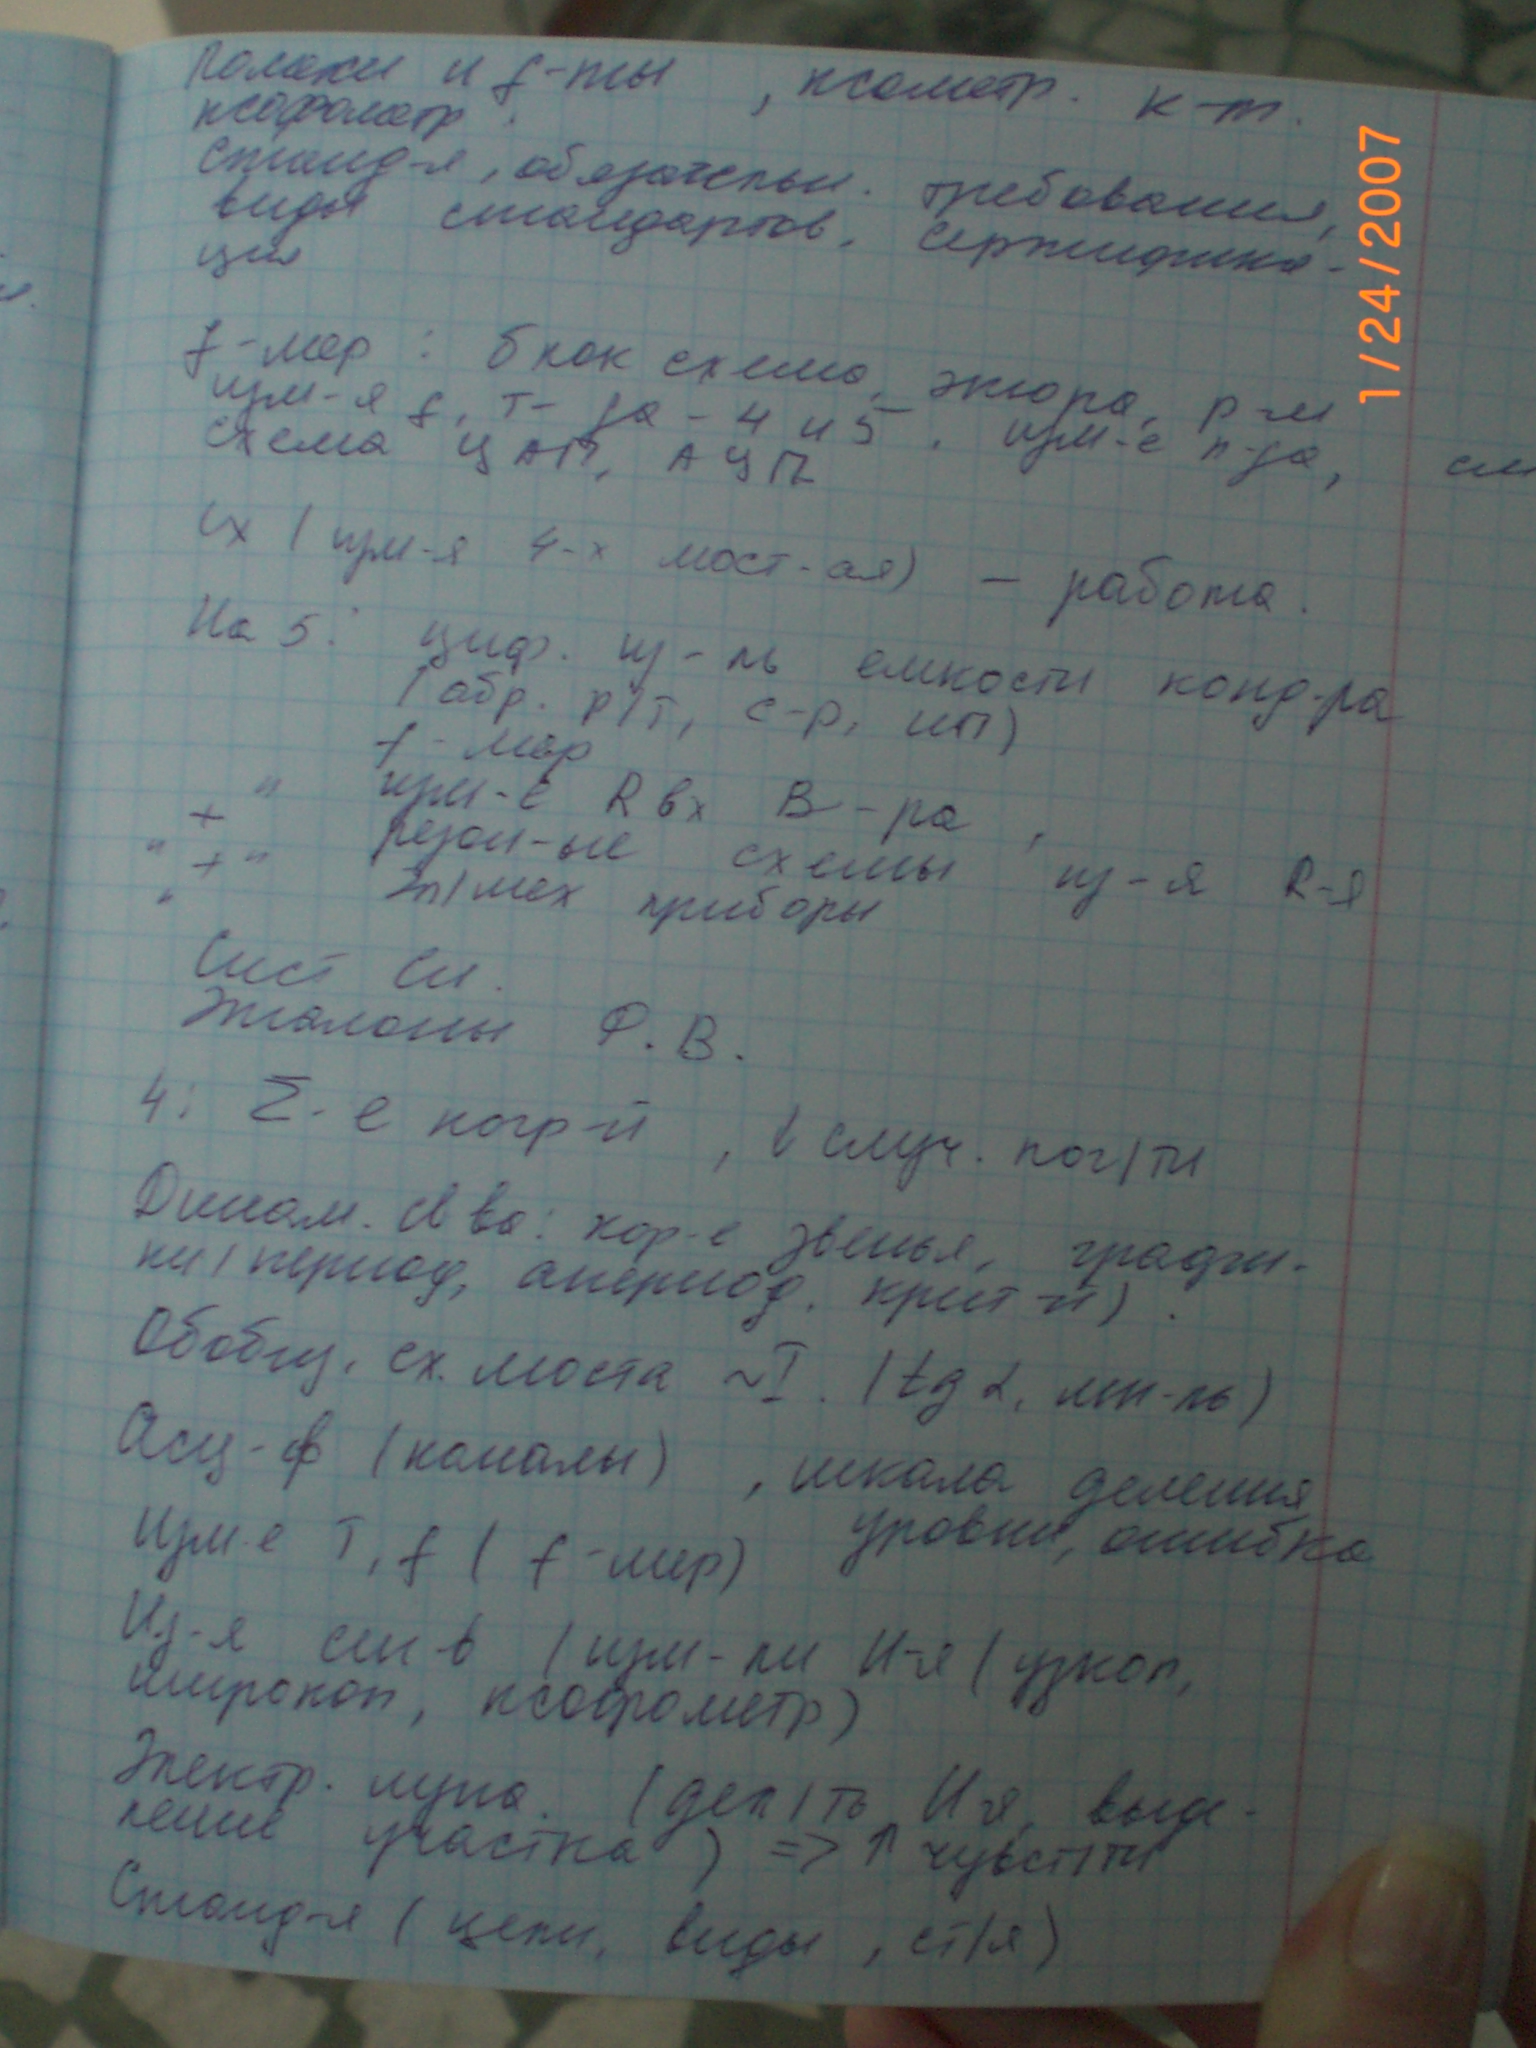 и f-ты, псометр. к-т.
псофометр.
станд-я, обязательн. требования,
виды стандартов, сертифика-
ция
f-мер: блок схема, эпюра, р-м
изм-я f, T- за - 4 и 5. изм-е п-да, см
схема ЦАП, АЦП
Cx (изм-я 4-х мост-ая) - работа.
На 5: циф. из-ль емкости конд-ра
(обр. р/т, с-р, ип)
f-мер
" изм-е Rвх В-ра,
+ резон-ые схемы из-я R-я
" + "
" эл/мех приборы
Сист Си.
Эталоны Ф.В.
4: Σ-е погр-й, (случ. пог/ти
Динам. св ва: кор-е звенья, гради-
ки/период, апериод. крит-й).
Обобщ. сх. моста ~I. (tg α, мн-ль)
Осц-ф (каналы), шкала деления
уровни, ошибка
Изм-е T, f (f-мер)
Из-я си-в (изм-ли И-я (узкоп,
широкоп, псофрометр)
Электр. лупа. (дел/ть И-я, выде-
ление участка) => ↑ чувст/ти
Станд-я (цели, виды, ст/я)
1/24/2007